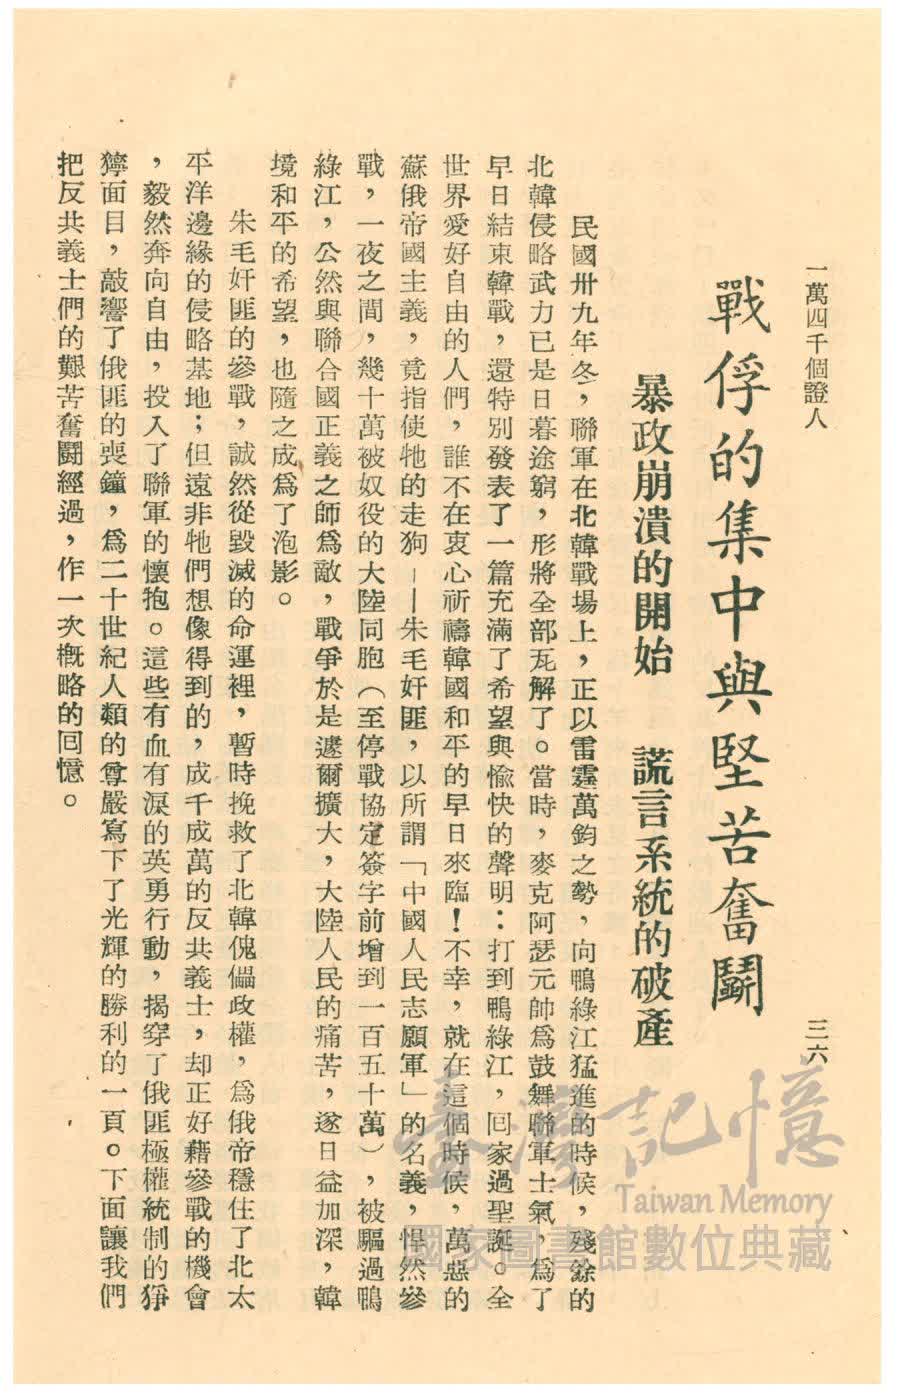 一萬四千個證人
三六
戰俘的集中與堅苦奮鬪
暴政崩潰的開始　謊言系統的破產
民國卅九年冬，聯軍在北韓戰場上，正以雷霆萬鈞之勢，向鴨綠江猛進的時候，殘餘的
北韓侵略武力已是日暮途窮，形將全部瓦解了。當時，麥克阿瑟元帥爲鼓舞聯軍士氣，爲了
早日結束韓戰，還特別發表了一篇充滿了希望與愉快的聲明：打到鴨綠江，回家過聖誕。全
世界愛好自由的人們，誰不在衷心祈禱韓國和平的早日來臨！不幸，就在這個時候，萬惡的
蘇俄帝國主義，竟指使牠的走狗——朱毛奸匪，以所謂「中國人民志願軍」的名義，悍然參
戰，一夜之間，幾十萬被奴役的大陸同胞（至停戰協定簽字前增到一百五十萬），被驅過鴨
綠江，公然與聯合國正義之師爲敵，戰爭於是遽爾擴大，大陸人民的痛苦，遂日益加深，韓
境和平的希望，也隨之成爲了泡影。
朱毛奸匪的參戰，誠然從毀滅的命運裡，暫時挽救了北韓傀儡政權，爲俄帝穩住了北太
平洋邊緣的侵略基地；但遠非牠們想像得到的，成千成萬的反共義士，却正好藉參戰的機會
，毅然奔向自由，投入了聯軍的懷抱。這些有血有淚的英勇行動，揭穿了俄匪極權統制的猙
獰面目，敲響了俄匪的喪鐘，爲二十世紀人類的尊嚴寫下了光輝的勝利的一頁。下面讓我們
把反共義士們的艱苦奮鬪經過，作一次概略的回憶。
臺灣記憶
Taiwan Memory
國家圖書館數位典藏